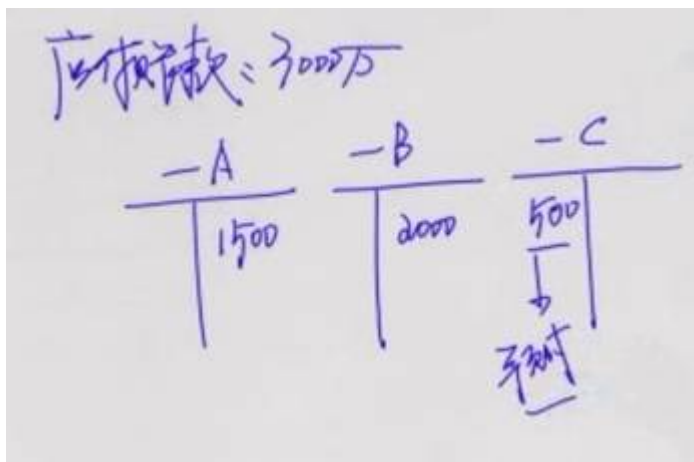 应付账款：3000万
—A —B —C
1500 2000 500
预付